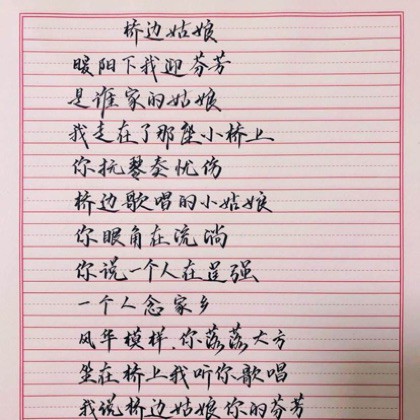 桥边姑娘
暖阳下我迎芬芳
是谁家的姑娘
我走在了那座小桥上
你抚琴奏忧伤
桥边歌唱的小姑娘
你眼角在流淌
你说一个人在逞强
一个人念家乡
风华模样.你落落大方
坐在桥上我听你歌唱
我说桥边姑娘你的芬芳